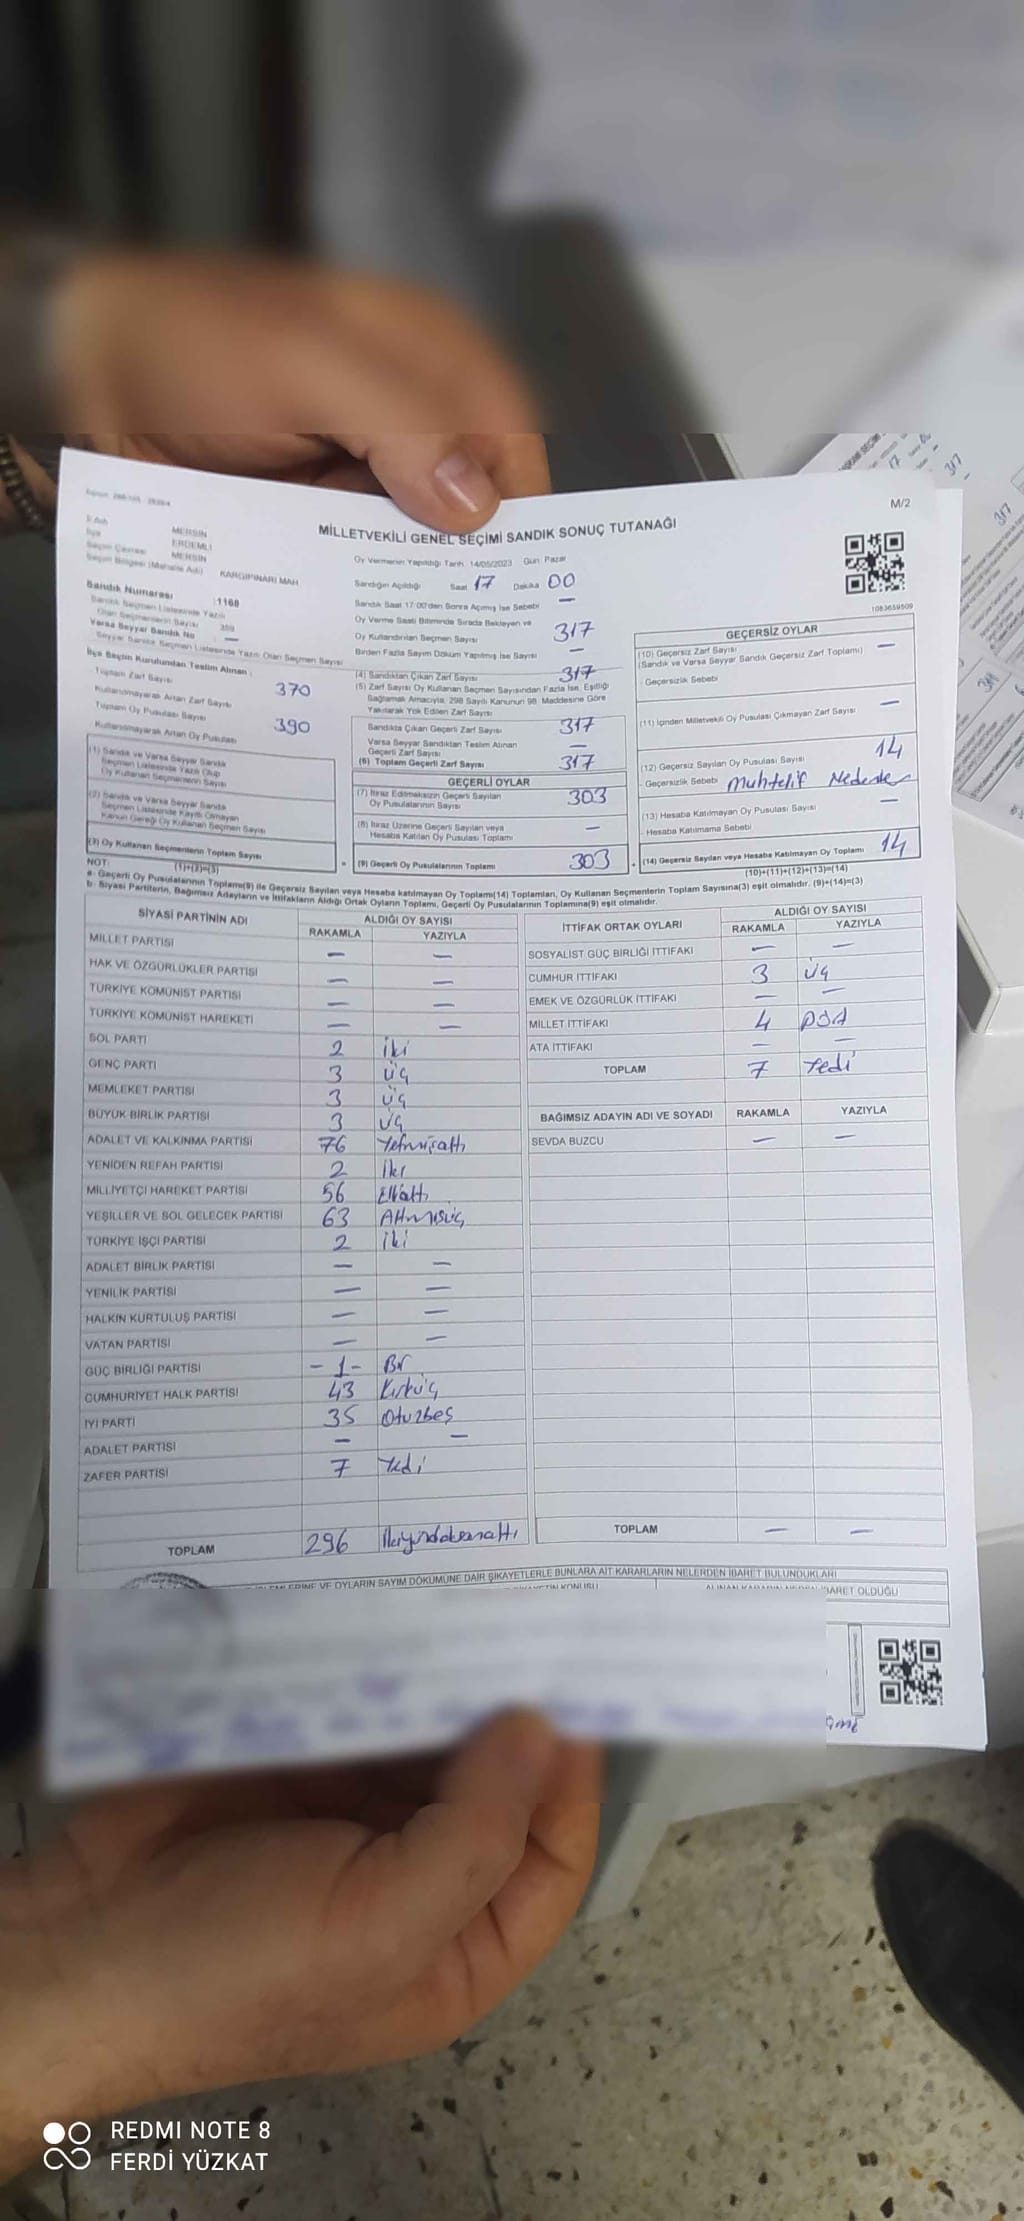 M/2
MİLLETVEKİLİ GENEL SEÇİMİ SANDIK SONUÇ TUTANAĞI
İli MERSİN
İlçe ERDEMLİ
Seçim Çevresi MERSİN
Seçim Bölgesi (Mahalle Adı) KARGIPINARI MAH.
Sandık Numarası : 1168
Sandık Seçmen Listesinde Yazılı
Olan Seçmenlerin Sayısı
Varsa Seyyar Sandık No : —
Seyyar Sandık Seçmen Listesinde Yazılı Olan Seçmen Sayısı
İlçe Seçim Kurulundan Teslim Alınan :
Toplam Zarf Sayısı 370
Kullanılmayarak Artan Zarf Sayısı
Toplam Oy Pusulası Sayısı 390
Kullanılmayarak Artan Oy Pusulası
(1) Sandık ve Varsa Seyyar Sandık
Seçmen Listesinde Yazılı Olup
Oy Kullanan Seçmenlerin Sayısı
(2) Sandık ve Varsa Seyyar Sandık
Seçmen Listesinde Kayıtlı Olmayan
Kanun Gereği Oy Kullanan Seçmen Sayısı
(3) Oy Kullanan Seçmenlerin Toplam Sayısı
(1)+(2)=(3)
Oy Vermenin Yapıldığı Tarih: 14/05/2023 Gün: Pazar
Sandığın Açıldığı Saat 17 Dakika 00
Sandık Saat 17:00'den Sonra Açılmış İse Sebebi —
Oy Verme Saati Bitiminde Sırada Bekleyen ve
Oy Kullandırılan Seçmen Sayısı 317
Birden Fazla Sayım Döküm Yapılmış İse Sayısı —
(4) Sandıktan Çıkan Zarf Sayısı 317
(5) Zarf Sayısı Oy Kullanan Seçmen Sayısından Fazla İse, Eşitliği
Sağlamak Amacıyla, 298 Sayılı Kanunun 98. Maddesine Göre
Yakılarak Yok Edilen Zarf Sayısı —
Sandıkta Çıkan Geçerli Zarf Sayısı 317
Varsa Seyyar Sandıktan Teslim Alınan
Geçerli Zarf Sayısı —
(6) Toplam Geçerli Zarf Sayısı 317
GEÇERLİ OYLAR
(7) İtiraz Edilmeksizin Geçerli Sayılan
Oy Pusulalarının Sayısı 303
(8) İtiraz Üzerine Geçerli Sayılan veya
Hesaba Katılan Oy Pusulası Toplamı —
(9) Geçerli Oy Pusulalarının Toplamı 303
1083659509
GEÇERSİZ OYLAR
(10) Geçersiz Zarf Sayısı —
(Sandık ve Varsa Seyyar Sandık Geçersiz Zarf Toplamı)
- Geçersizlik Sebebi
(11) İçinden Milletvekili Oy Pusulası Çıkmayan Zarf Sayısı —
(12) Geçersiz Sayılan Oy Pusulası Sayısı 14
- Geçersizlik Sebebi Muhtelif Nedenler
(13) Hesaba Katılmayan Oy Pusulası Sayısı —
- Hesaba Katılmama Sebebi
(14) Geçersiz Sayılan veya Hesaba Katılmayan Oy Toplamı 14
(10)+(11)+(12)+(13)=(14)
NOT:
a- Geçerli Oy Pusulalarının Toplamı(9) ile Geçersiz Sayılan veya Hesaba katılmayan Oy Toplamı(14) Toplamları, Oy Kullanan Seçmenlerin Toplam Sayısına(3) eşit olmalıdır. (9)+(14)=(3)
b- Siyasi Partilerin, Bağımsız Adayların ve İttifakların Aldığı Ortak Oyların Toplamı, Geçerli Oy Pusulalarının Toplamına(9) eşit olmalıdır.
SİYASİ PARTİNİN ADI ALDIĞI OY SAYISI
RAKAMLA YAZIYLA
MİLLET PARTİSİ — —
HAK VE ÖZGÜRLÜKLER PARTİSİ — —
TÜRKİYE KOMÜNİST PARTİSİ — —
TÜRKİYE KOMÜNİST HAREKETİ — —
SOL PARTİ 2 iki
GENÇ PARTİ 3 üç
MEMLEKET PARTİSİ 3 üç
BÜYÜK BİRLİK PARTİSİ 3 üç
ADALET VE KALKINMA PARTİSİ 76 Yetmişaltı
YENİDEN REFAH PARTİSİ 2 iki
MİLLİYETÇİ HAREKET PARTİSİ 56 Ellialtı
YEŞİLLER VE SOL GELECEK PARTİSİ 63 Altmışüç
TÜRKİYE İŞÇİ PARTİSİ 2 iki
ADALET BİRLİK PARTİSİ — —
YENİLİK PARTİSİ — —
HALKIN KURTULUŞ PARTİSİ — —
VATAN PARTİSİ — —
GÜÇ BİRLİĞİ PARTİSİ -1- Bir
CUMHURİYET HALK PARTİSİ 43 Kırküç
İYİ PARTİ 35 Otuzbeş
ADALET PARTİSİ — —
ZAFER PARTİSİ 7 Yedi
TOPLAM 296 İkiyüzdoksanaltı
İTTİFAK ORTAK OYLARI ALDIĞI OY SAYISI
RAKAMLA YAZIYLA
SOSYALİST GÜÇ BİRLİĞİ İTTİFAKI — —
CUMHUR İTTİFAKI 3 üç
EMEK VE ÖZGÜRLÜK İTTİFAKI — —
MİLLET İTTİFAKI 4 Dört
ATA İTTİFAKI — —
TOPLAM 7 Yedi
BAĞIMSIZ ADAYIN ADI VE SOYADI RAKAMLA YAZIYLA
SEVDA BUZCU — —
TOPLAM — —
VE OYLARIN SAYIM DÖKÜMÜNE DAİR ŞİKAYETLERLE BUNLARA AİT KARARLARIN NELERDEN İBARET BULUNDUKLARI
İBARET OLDUĞU
REDMI NOTE 8
FERDİ YÜZKAT